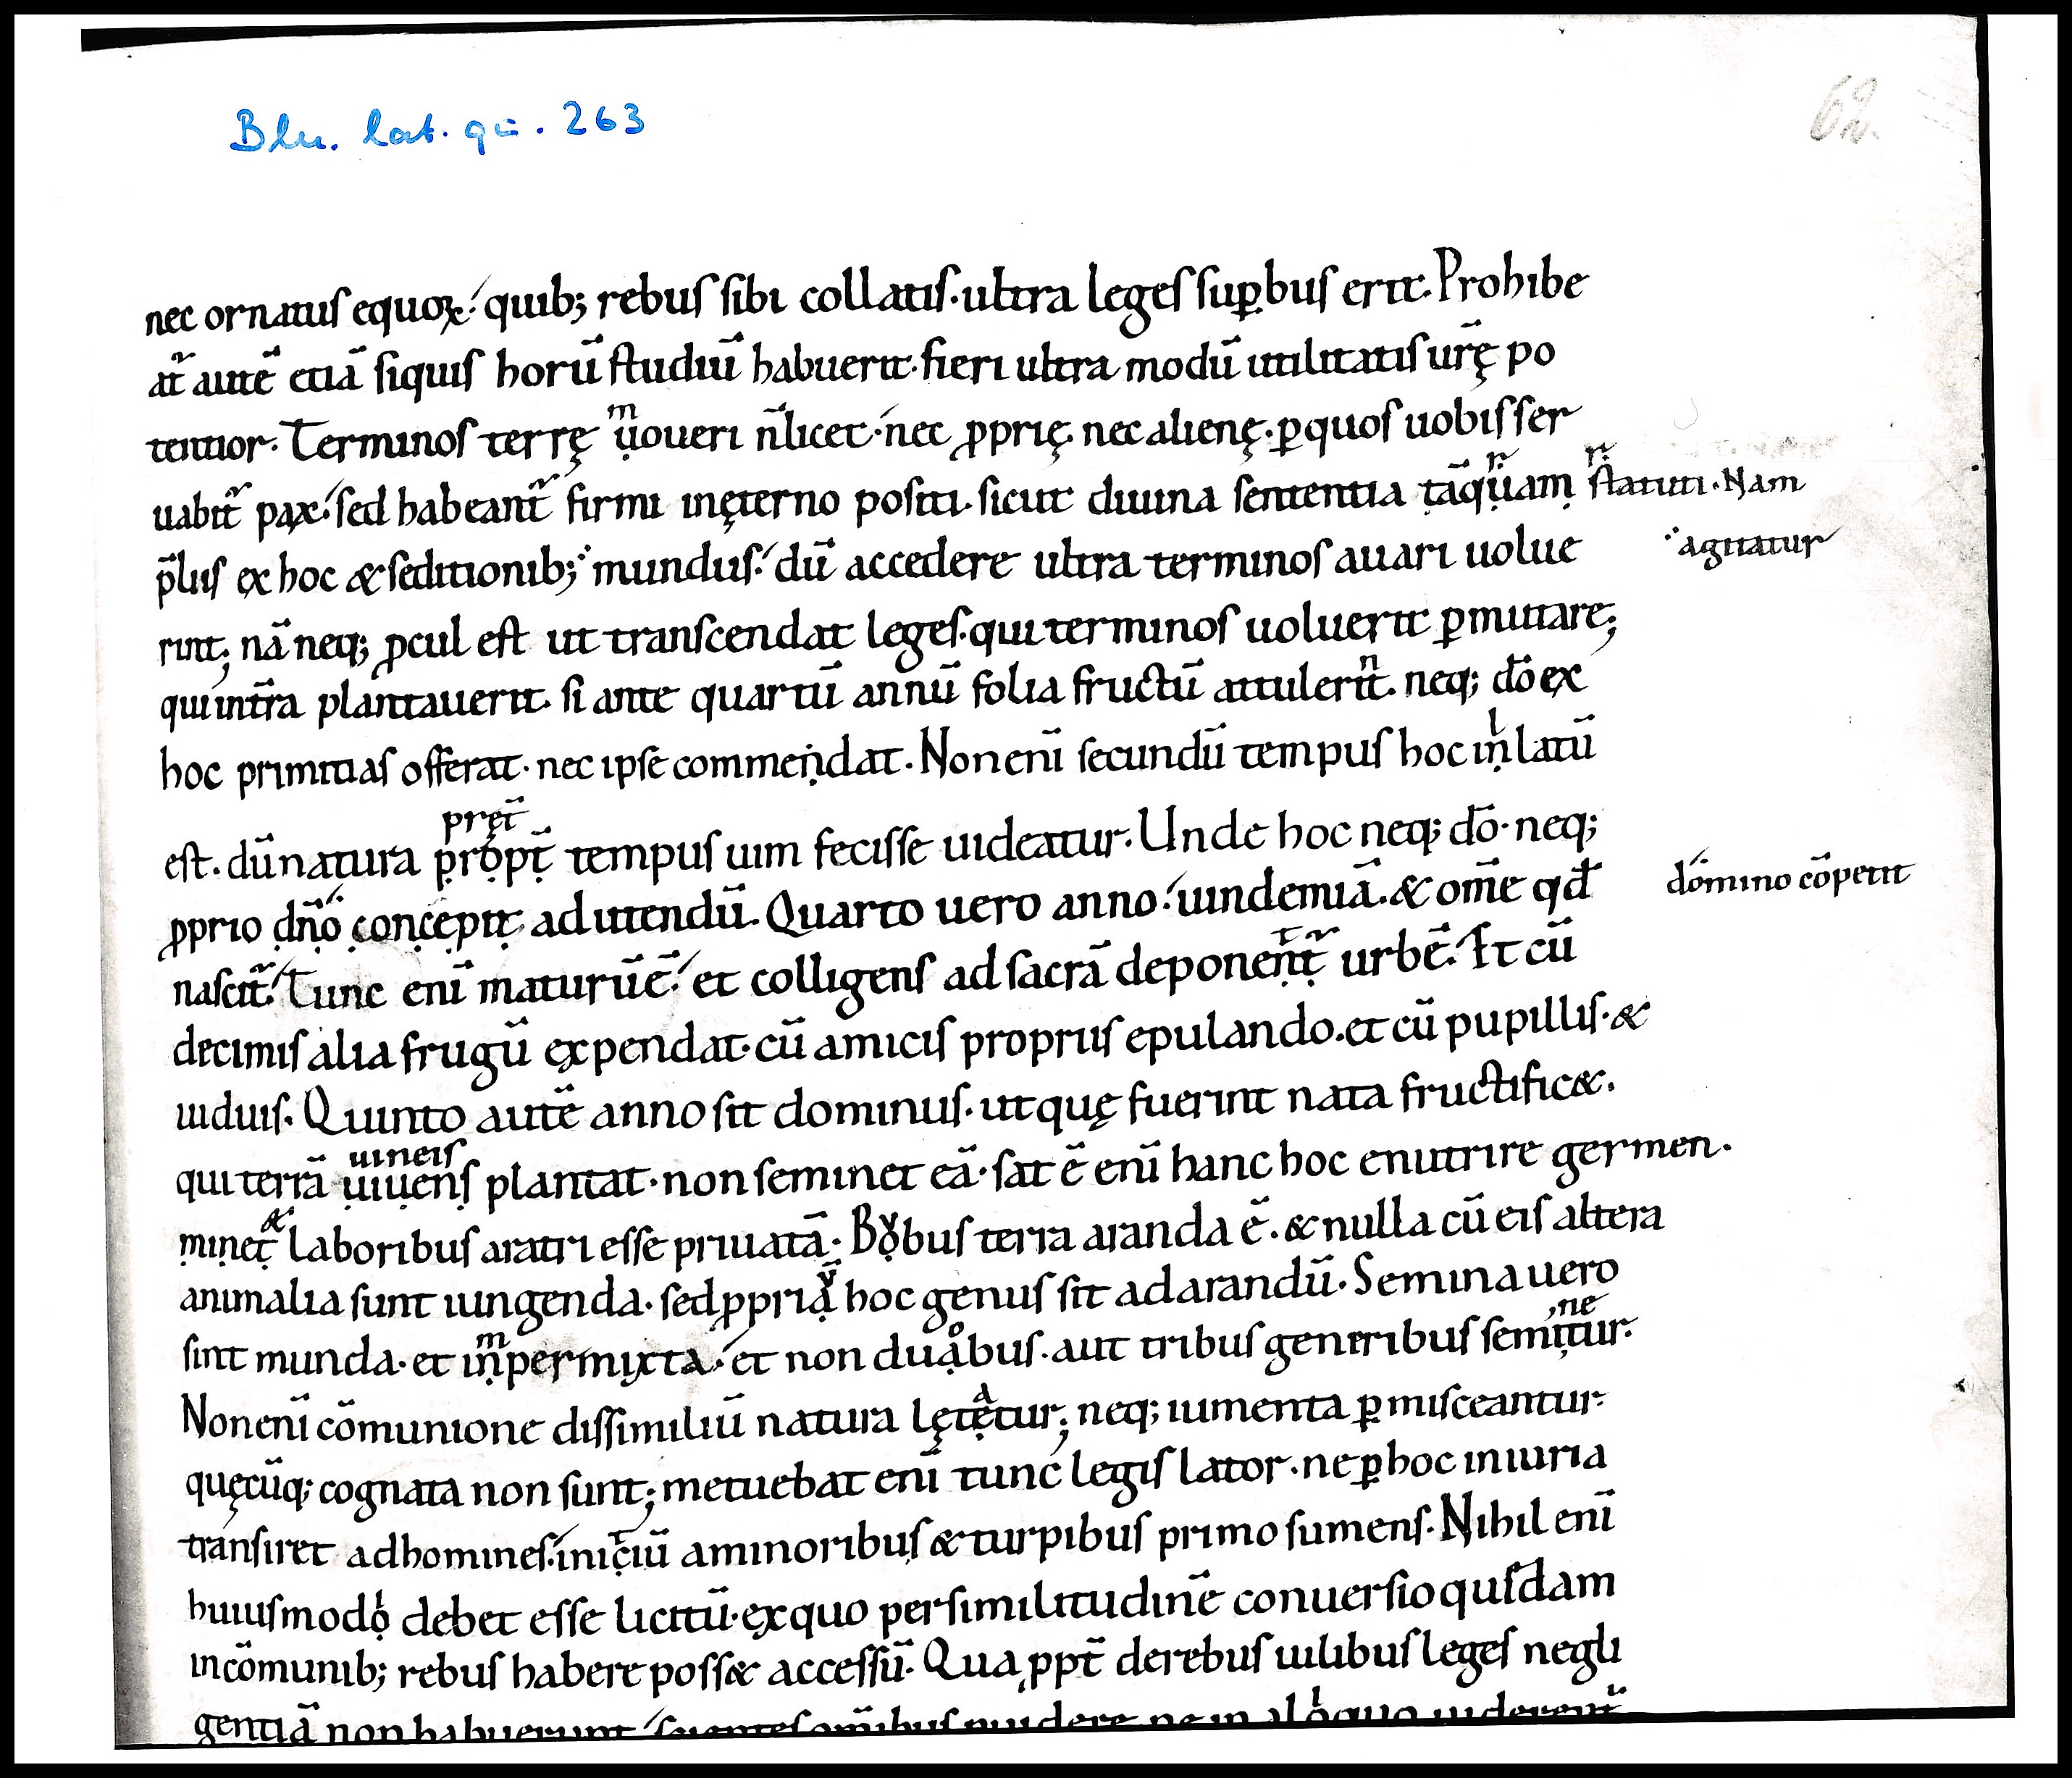 Blu. lat. qu. 263
62.
nec ornatus equoꝝ. quib; rebus sibi collatis. ultra leges suꝑbus erit. Prohibe
at᷑ autē etiā siquis horū studiū habuerit. fieri ultra modū utilitatis ur̄ę po
tentior. Terminos terrę m
uoueri n̄ licet. nec ꝓprię nec alienę. ꝑ quos uobis ser
uabit᷑ pax. sed habeant᷑ firmi inęterno positi. sicut diuina sententia tāquam statuti. Nam
p̄lus ex hoc & seditionib; mundus. dū accedere ultra terminos auari uolue
agitatur
rint; nā neq; ꝓcul est ut transcendat leges. qui terminos uoluerit ꝑmutare;
qui intr̄a plantauerit. si ante quartū annū folia fructū attulerit. neq; dō ex
hoc primitias offerat. nec ipse commendat. Non enī secundū tempus hoc inlatū
pręt̄
est. dū natura propt̄ tempus uim fecisse uideatur. Unde hoc neq; dō. neq;
ꝓprio dn̄o conceptit ad utendū. Quarto uero anno. uindemiā. & om̄e qđ
dōmino cōpetit
nascit᷑. Tunc enī maturū ē. et colligens ad sacrā deponent᷑ urbē. Et cū
decimis alia frugū expendat. cū amicis propriis epulando. et cū pupillis. &
uiduis. Quinto autē anno sit dominus. ut quę fuerint nata fructific&.
uineis
qui terrā uiuens plantat. non seminet eā. sat ē enī hanc hoc enutrire germen.
minet laboribus aratri esse priuatā. Bobus terra aranda ē. & nulla cū eis altera
animalia sunt iungenda. sed ꝓpria hoc genus sit ad arandū. Semina uero
sint munda. et inpermixta. et non duabus. aut tribus generibus semitur.
ne
Non enī cōmunione dissimiliū natura lętetur; neq; iumenta ꝑmisceantur.
quęcūq; cognata non sunt; metuebat enī tunc legis lator. ne ꝑ hoc iniuria
transiret ad homines. iniciū a minoribus & turpibus primo sumens. Nihil enī
huiusmodo debet esse licitū. ex quo per similitudinē conuersio qusdam
in cōmunib; rebus habere poss& accessū. Qua ꝓpt̄ de rebus uilibus leges negli
gentiā non habuerunt